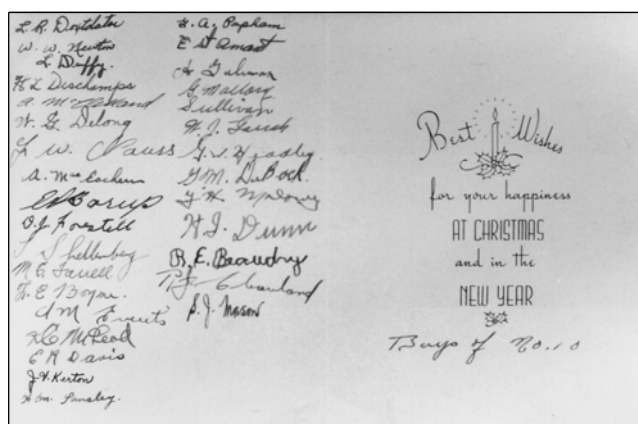 L. R. Doxtdator
W. W. Newton
L Duffy.
H L Deschamps
A. McLelland
W. G. Delong
L W Clauss
A. MacEachern
O. J. Forestell
S Shellenberg
M C Farrell
L. E Boyne.
A M Everets
H C McLeod
E R Davis
J. H. Kerton
Wm. Lansley.
H. A. Papham
E St Amast
H Galivan
G Mallory
Sullivan
W. J. Gauch
G. W. Hjadley.
G. M. DuBock
H. J. Dunn
R. E. Beaudry
P J Cleaveland
B. J. Mason
Best Wishes
for your happiness
AT CHRISTMAS
and in the
NEW YEAR
Boys of No. 10